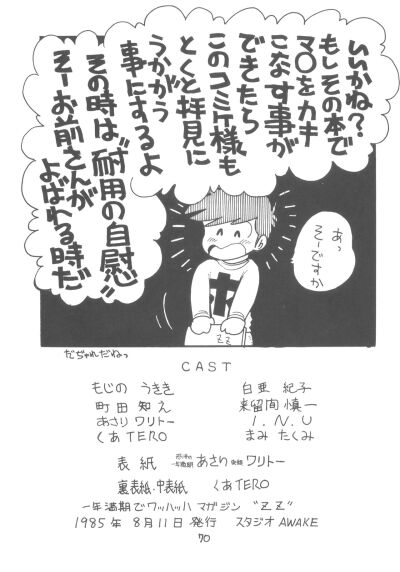 いいかね?
もしその本で
マ〇をカキ
こなす事が
できたら
このコミケ様も
とくと拝見に
うかがう
事にするよ
その時は〝耐用の自慰〟
そーお前さんが
よばれる時だ
あっ
そーですか
ZZ
だぢゃれだねっ
CAST
もじの うきき
白亜 紀子
町田 知え
来留間 慎一
あさり ワリトー
I.N.U
くあTERO
まみ たくみ
表紙 一年満期 あさり ワリトー
裏表紙・中表紙 くあTERO
一年満期でワッハッハ マガジン “ZZ”
1985年 8月11日 発行 スタジオ AWAKE
70